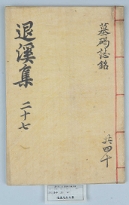 墓碣誌銘
退溪集
二十七
共四十